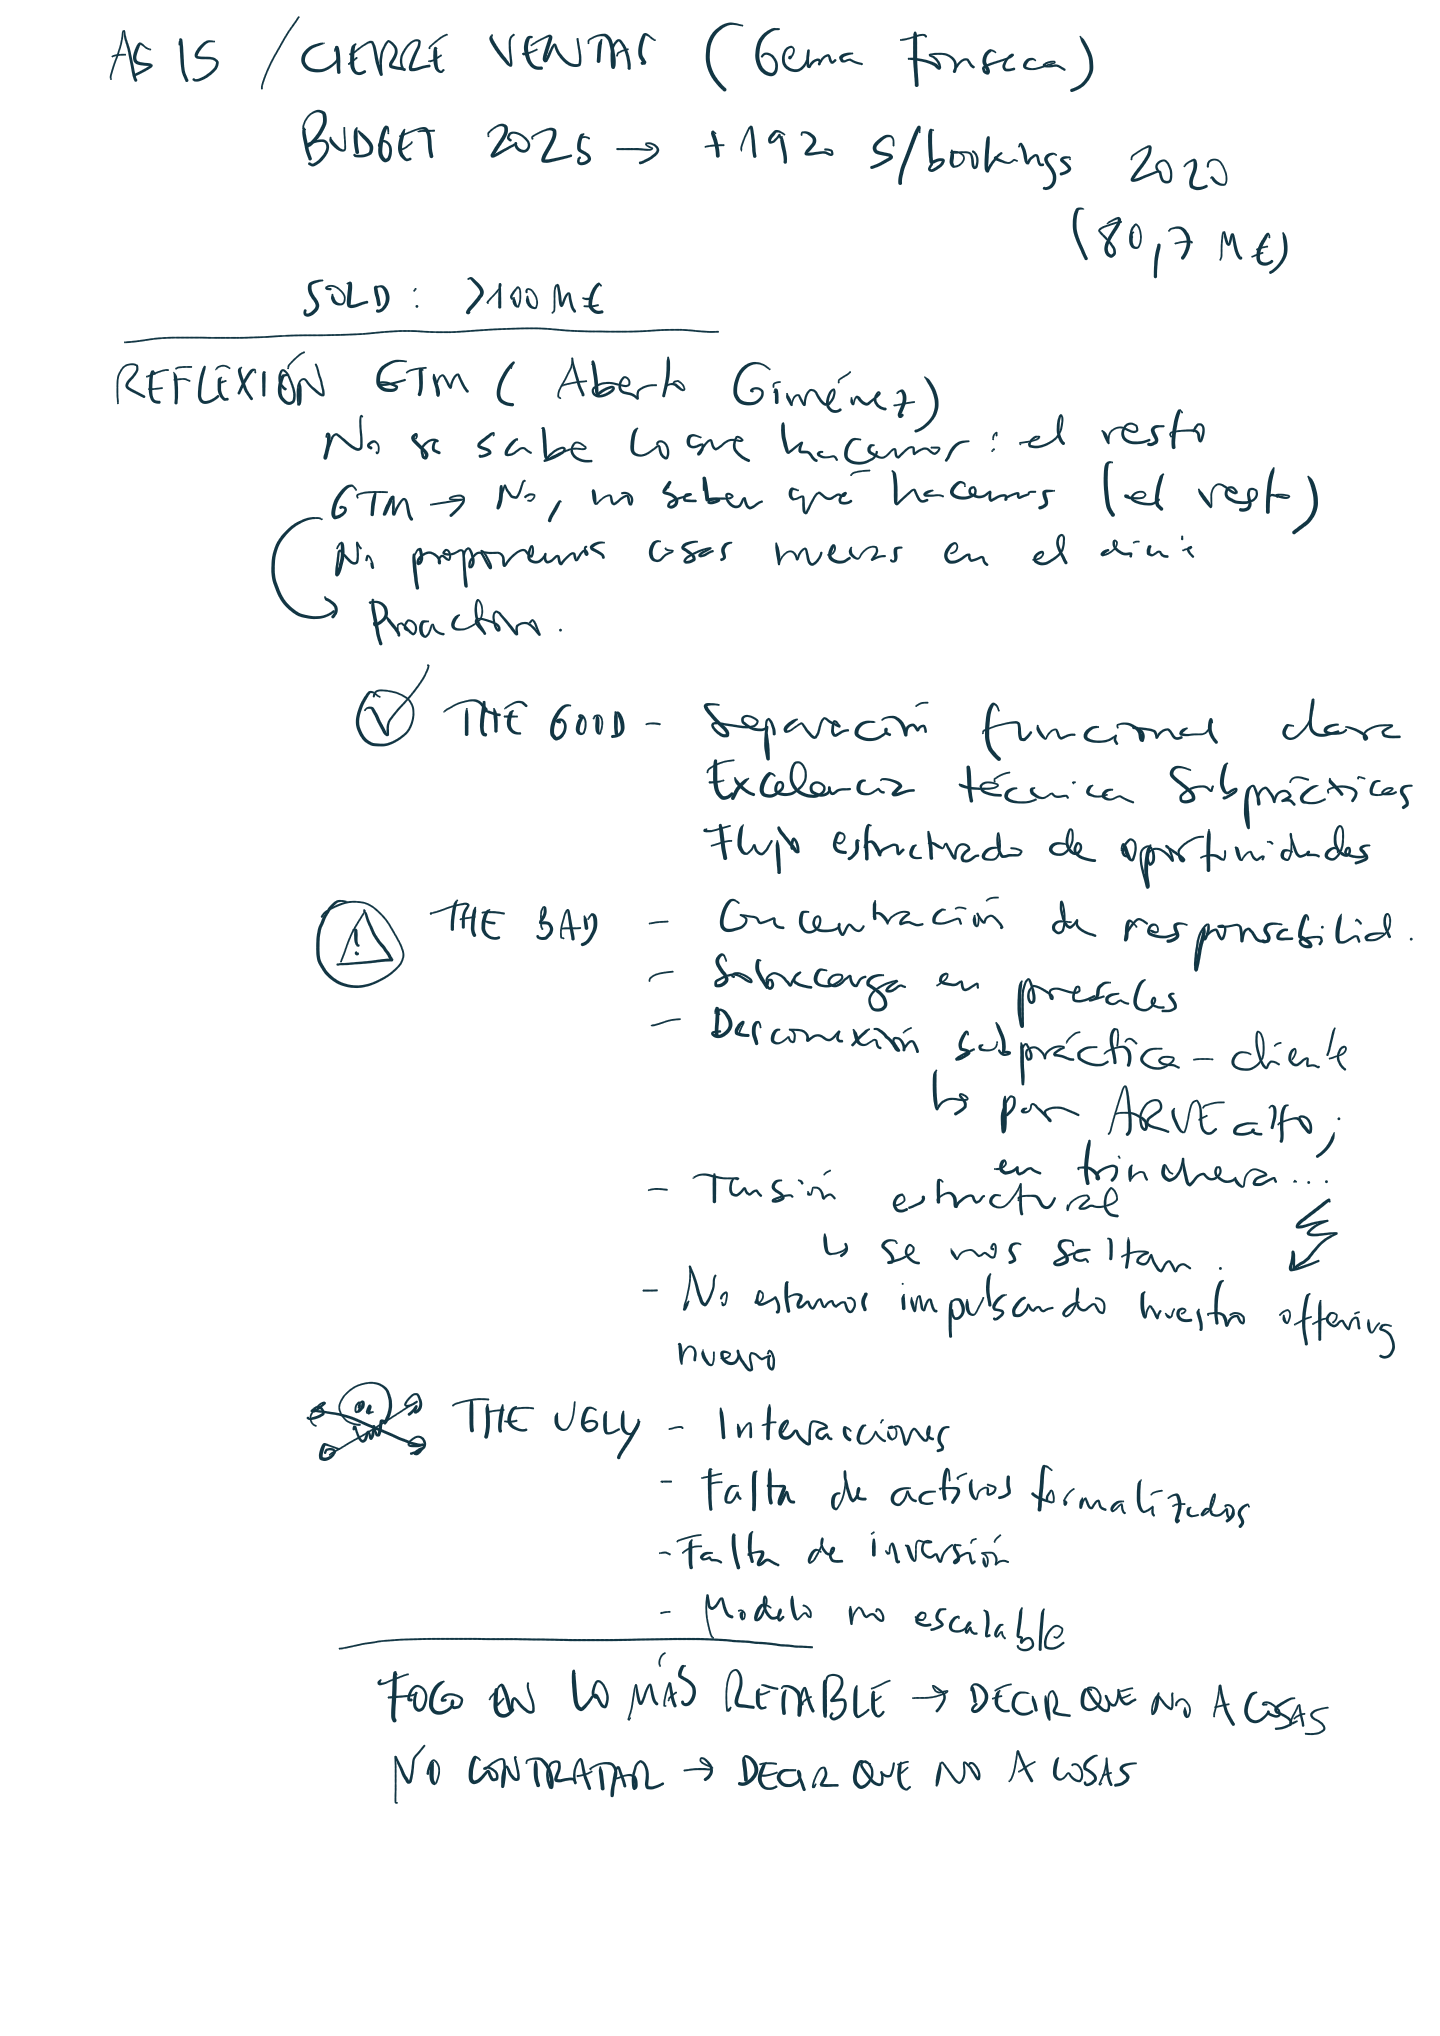 AS IS / CIERRE VENTAS (Gema Fonseca)
BUDGET 2025 → +192 s/bookings 2020
(80,7 M€)
SOLD: >100M€
REFLEXIÓN GTM (Aberto Giménez)
No se sabe lo que hacemos: el resto
GTM → No, no saber qué hacemos (el resto)
No proponemos cosas nuevas en el
Proactivo.
THE GOOD - Separación funcional clara
Excelencia técnica Subprácticas
Flujo estructurado de oportunidades
THE BAD - Concentración de responsabilid.
- Sobrecarga en presales
- Desconexión subpráctica - cliente
↳ por ARVE alto;
en trinchera...
- Tensión estructural
↳ se nos saltan.
- No estamos impulsando nuestro offering
nuevo
THE UGLY - Interacciones
- Falta de activos formalizados
- Falta de inversión
- Modelo no escalable
FOCO EN LO MÁS RETABLE → DECIR QUE NO A COSAS
NO CONTRATAR → DECIR QUE NO A COSAS